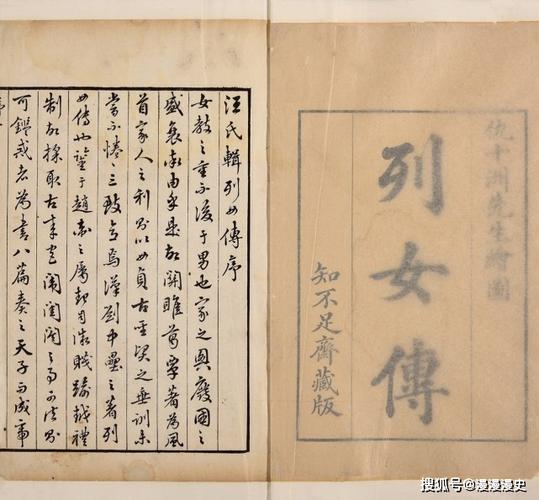 仇十洲先生繪圖
列女傳
知不足齋藏版
汪氏輯列女傳序
女教之重不後于男也家之興廢國之
盛衰率由乎是故關雎葛覃著為風
首家人之利則以女貞古聖賢之垂訓未
嘗不惓三致意焉漢劉中壘之著列
女傳也鑒于趙衛之屬起自微賤踰越禮
制故採取古來宮闈閨閤之事可法則
可鑑戒者為書八篇奏之天子而成帝
搜狐号@漫漫漫史